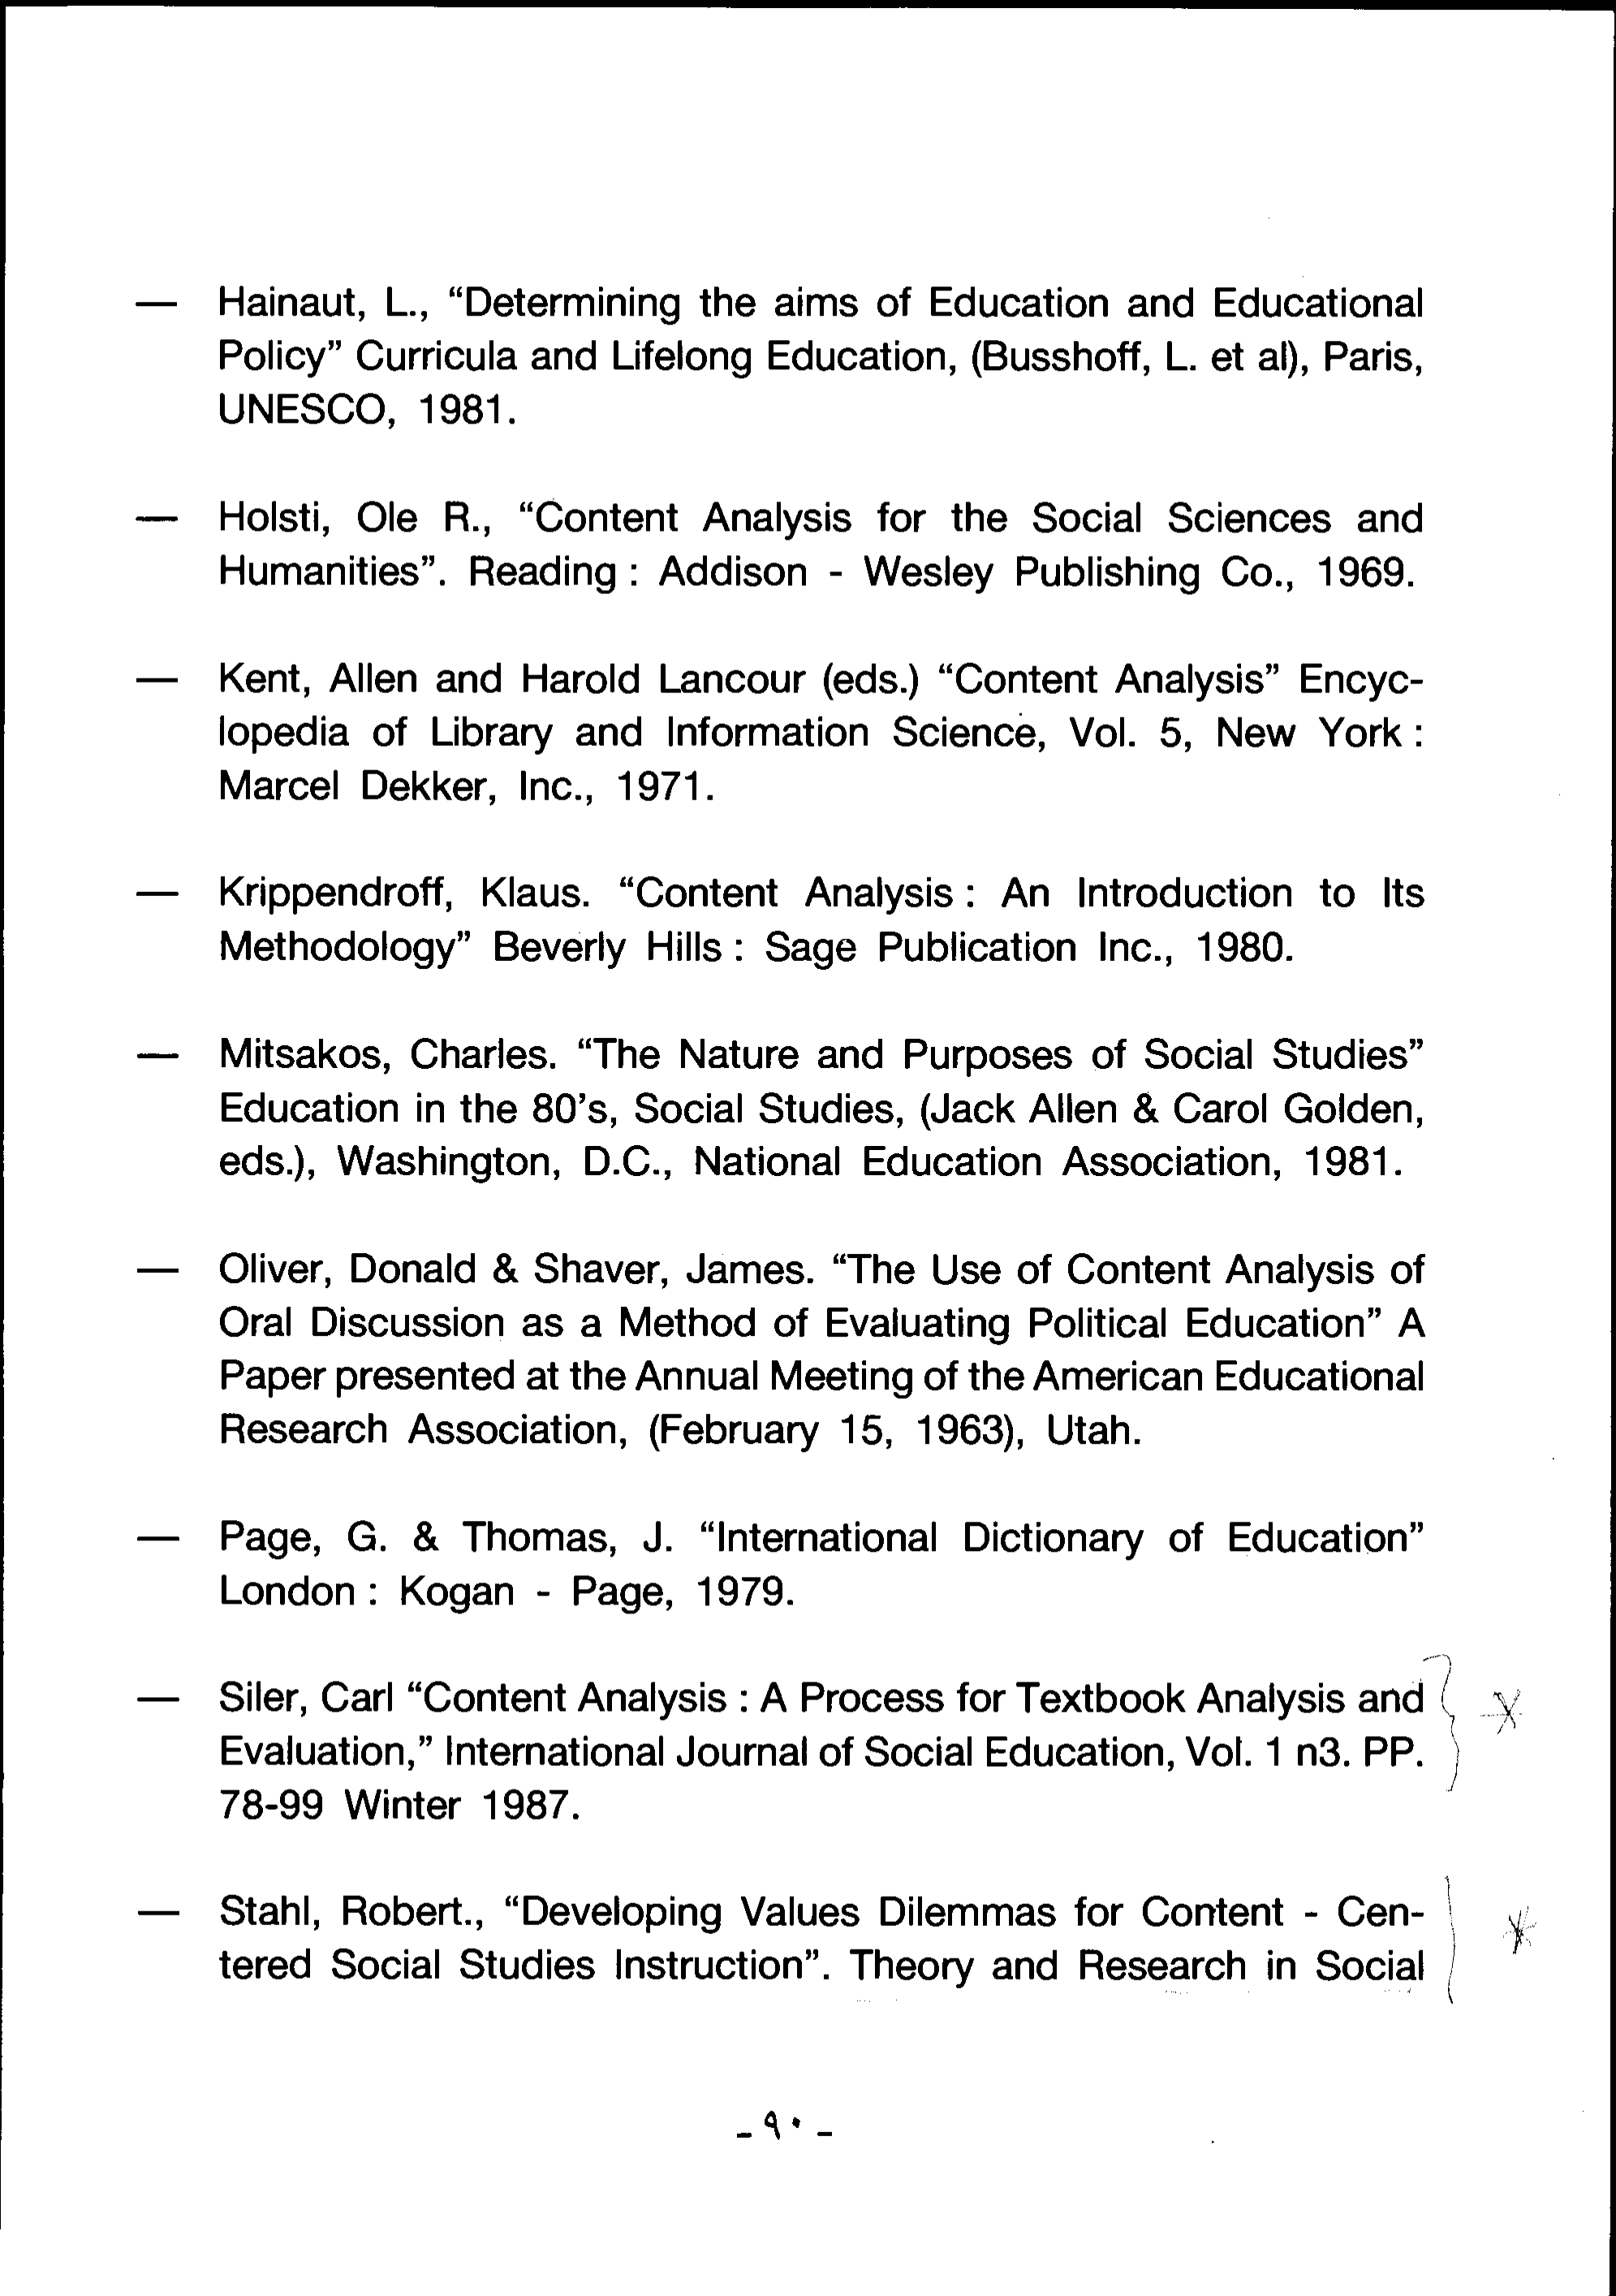 — Hainaut, L., “Determining the aims of Education and Educational
Policy” Curricula and Lifelong Education, (Busshoff, L. et al), Paris,
UNESCO, 1981.
— Holsti, Ole R., “Content Analysis for the Social Sciences and
Humanities”. Reading : Addison - Wesley Publishing Co., 1969.
— Kent, Allen and Harold Lancour (eds.) “Content Analysis” Encyc-
lopedia of Library and Information Science, Vol. 5, New York :
Marcel Dekker, Inc., 1971.
— Krippendroff, Klaus. “Content Analysis : An Introduction to Its
Methodology” Beverly Hills : Sage Publication Inc., 1980.
— Mitsakos, Charles. “The Nature and Purposes of Social Studies”
Education in the 80’s, Social Studies, (Jack Allen & Carol Golden,
eds.), Washington, D.C., National Education Association, 1981.
— Oliver, Donald & Shaver, James. “The Use of Content Analysis of
Oral Discussion as a Method of Evaluating Political Education” A
Paper presented at the Annual Meeting of the American Educational
Research Association, (February 15, 1963), Utah.
— Page, G. & Thomas, J. “International Dictionary of Education”
London : Kogan - Page, 1979.
— Siler, Carl “Content Analysis : A Process for Textbook Analysis and
Evaluation,” International Journal of Social Education, Vol. 1 n3. PP.
78-99 Winter 1987.
— Stahl, Robert., “Developing Values Dilemmas for Content - Cen-
tered Social Studies Instruction”. Theory and Research in Social
- ٩٠ -